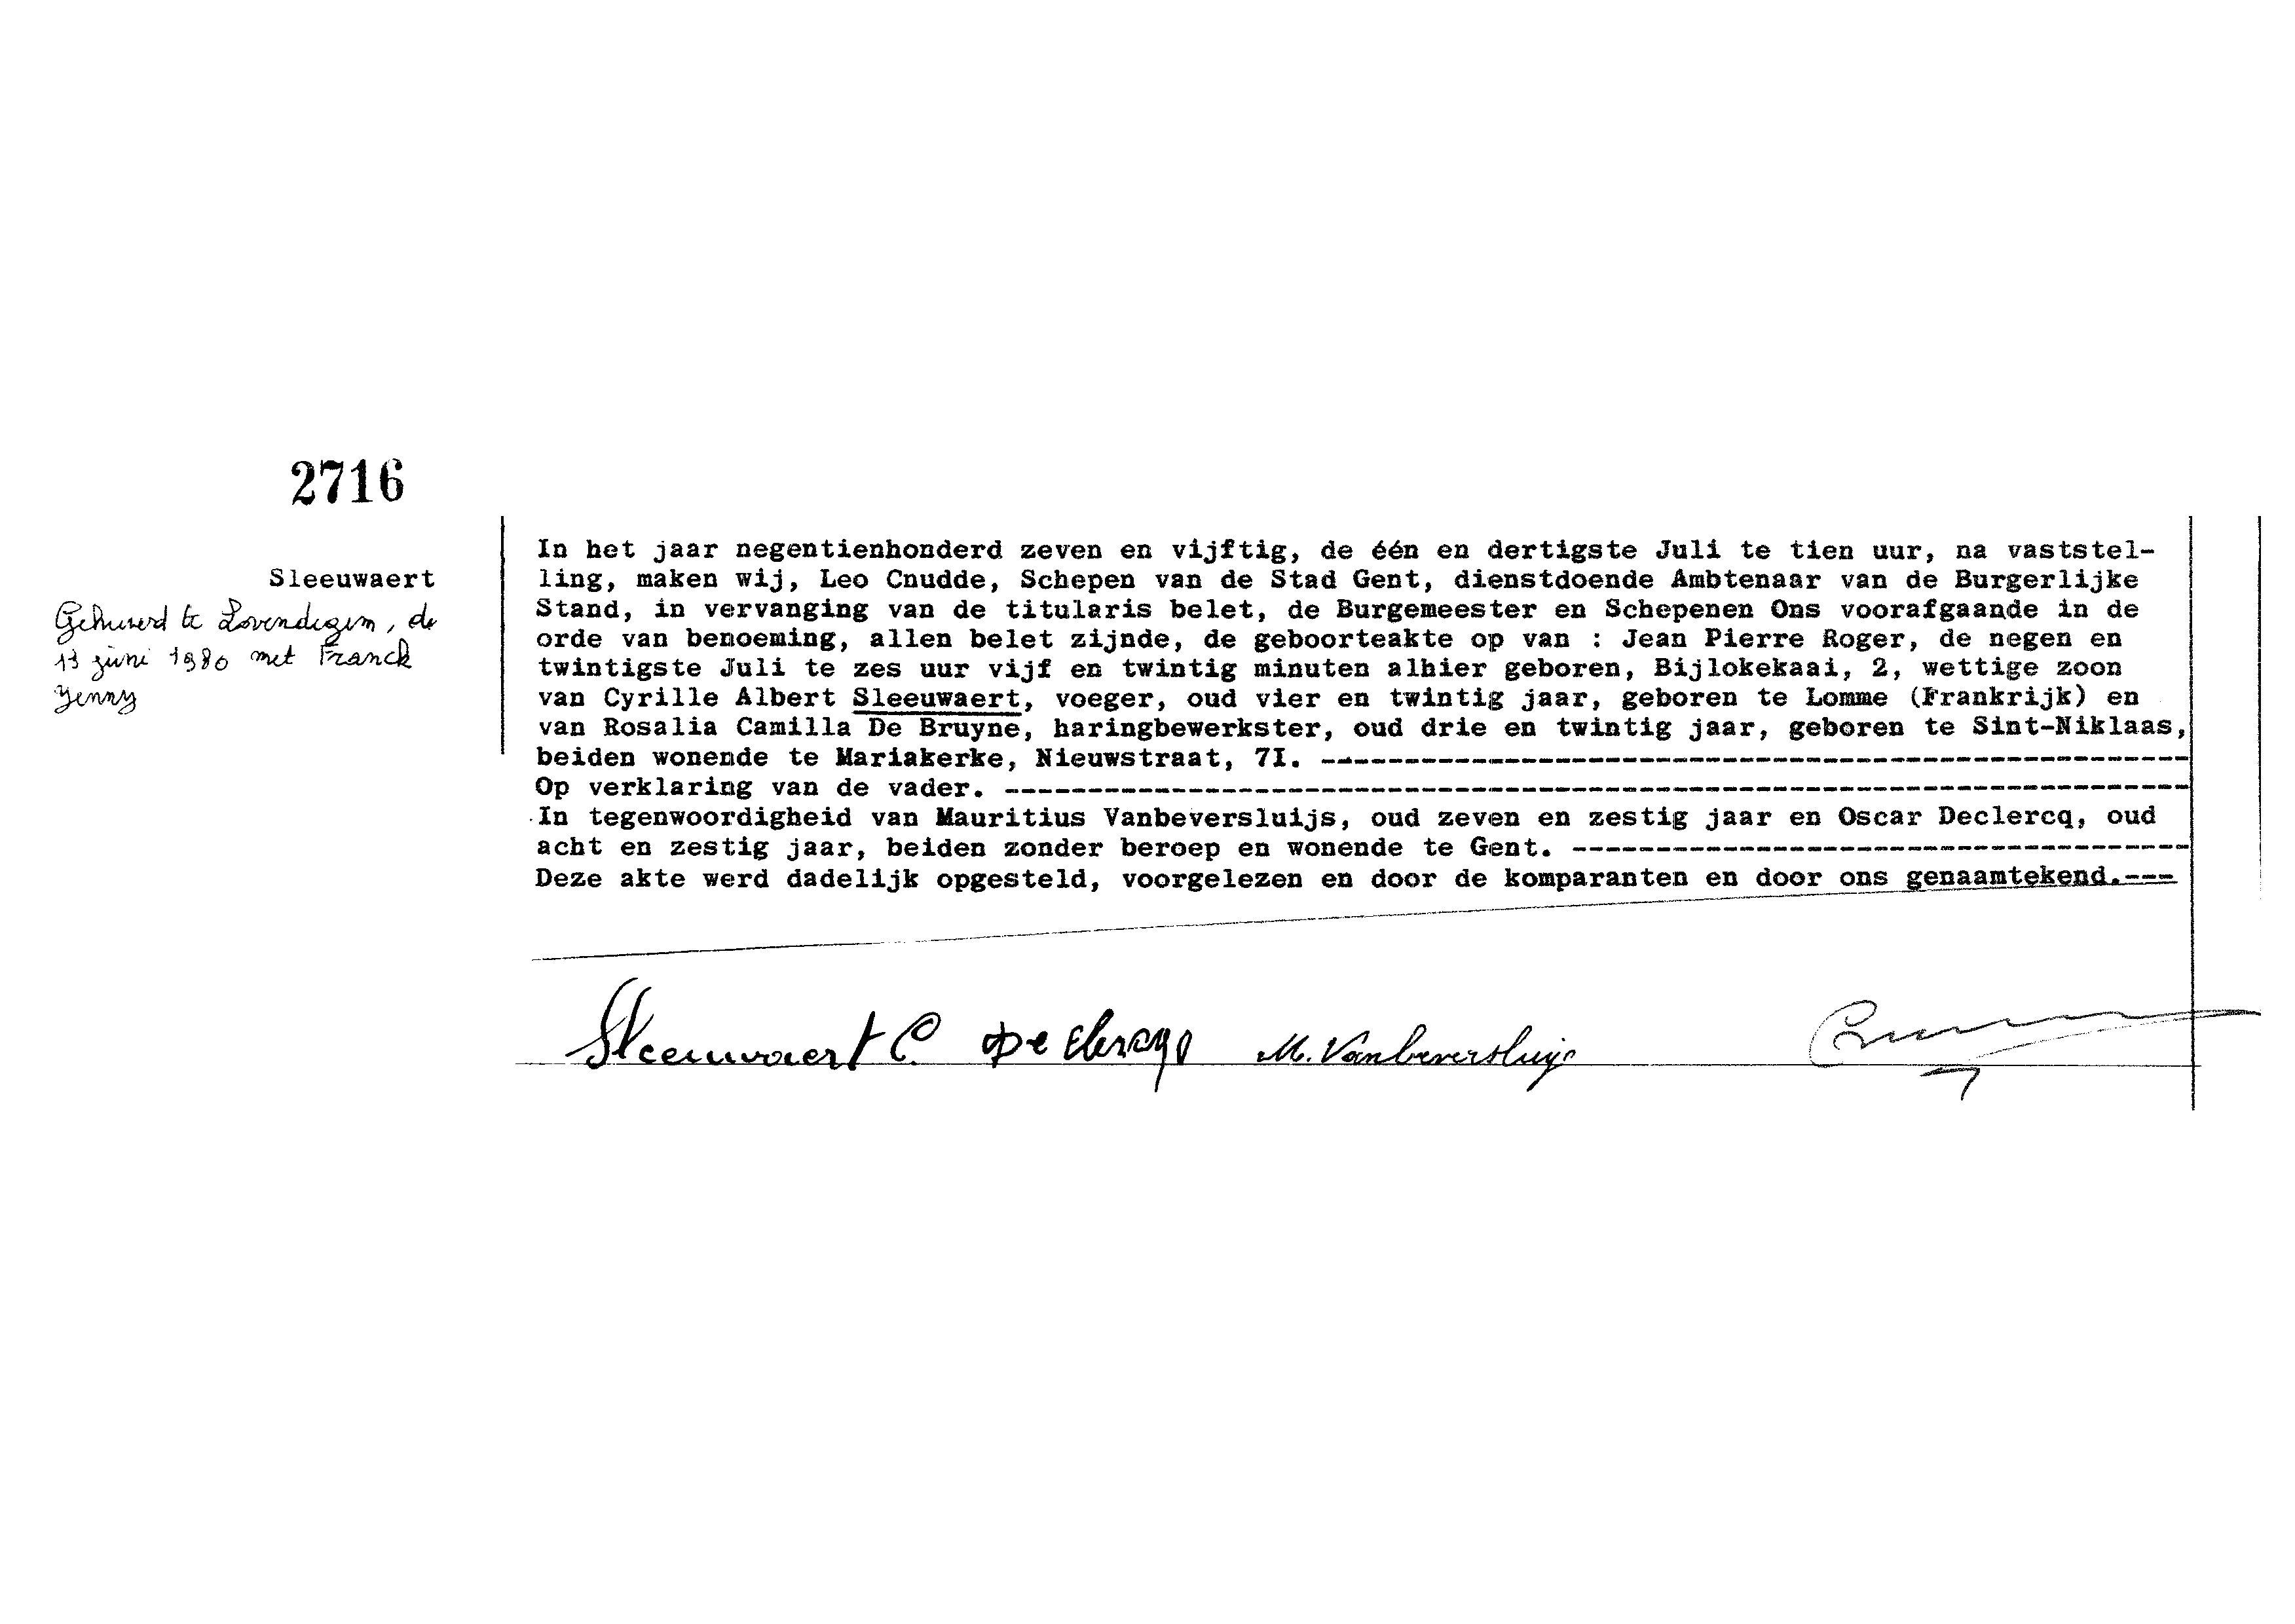 2716
Sleeuwaert
Gehuwd te Lovendegem, de
13 juni 1980 met Franck
Jenny
In het jaar negentienhonderd zeven en vijftig, de één en dertigste Juli te tien uur, na vaststel-
ling, maken wij, Leo Cnudde, Schepen van de Stad Gent, dienstdoende Ambtenaar van de Burgerlijke
Stand, in vervanging van de titularis belet, de Burgemeester en Schepenen Ons voorafgaande in de
orde van benoeming, allen belet zijnde, de geboorteakte op van : Jean Pierre Roger, de negen en
twintigste Juli te zes uur vijf en twintig minuten alhier geboren, Bijlokekaai, 2, wettige zoon
van Cyrille Albert Sleeuwaert, voeger, oud vier en twintig jaar, geboren te Lomme (Frankrijk) en
van Rosalia Camilla De Bruyne, haringbewerkster, oud drie en twintig jaar, geboren te Sint-Niklaas,
beiden wonende te Mariakerke, Nieuwstraat, 7I. ----------------------------------------------------
Op verklaring van de vader. -----------------------------------------------------------------------
In tegenwoordigheid van Mauritius Vanbeversluijs, oud zeven en zestig jaar en Oscar Declercq, oud
acht en zestig jaar, beiden zonder beroep en wonende te Gent. -------------------------------------
Deze akte werd dadelijk opgesteld, voorgelezen en door de komparanten en door ons genaamtekend.---
Sleeuwaert C. De Clercq O M. Vanbeversluijs